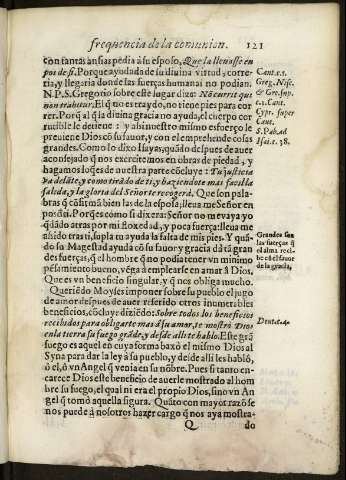 frequencia de la comunion. 121
con tantas ansias pedia a su esposo, Que la lleuasse en
pos de si. Porque ayudada de su diuina virtud y corre-
ria, y llegaria donde las fuerças humanas no podian.
N.P.S. Gregorio sobre este lugar dize: Nõ currit qui
non trahitur. El q̃ no es traydo, no tiene pies para cor
rer. Porq̃ al q̃ la diuina gracia no ayuda, el cuerpo cor
ruptible le detiene: y a bien mismo esfuerço le pre
uiene Dios cõ su fauor, y con el emprende cosas
grandes. Como lo dixo Isayas, quãdo despues de auer
aconsejado q̃ nos exercitemos en obras de piedad, y
hagamos loq̃ es de nuestra parte cõcluye: Tu justicia
va delãte, y como tirado de ti, y haziendote mas facil la
salida, y la gloria del Señor te recogerá. Que son pala-
bras q̃ cõfirmã bien las de la esposa, lleua me Señor en
pos de ti. Porq̃ es como si dixera: Señor no me vaya yo
quãdo atras por mi floxedad, y poca fuerça: lleua me
añidido tras ti, supla tu ayuda la falta de mis pies. Y quã-
do su Magestad ayuda cõ su fauor y gracia dá tã gran
des fuerças, q̃ el hombre q̃ no podia tener vn minimo
pẽsamiento bueno, vẽga à emplearse en amar â Dios,
Que es vn beneficio singular, y q̃ nos obliga mucho.
Queriẽdo Moyses imponer sobre su pueblo el jugo
de amor despues de auer referido otros inumerables
beneficios, cõcluye diziẽdo: Sobre todos los beneficios
recebidos para obligarte mas á su amor, te mostró Dios
en la tierra su fuego grãde, y desde alli te hablo. Este grã
fuego es aquel en cuya forma baxó el mismo Dios al
Syna para dar la ley á su pueblo, y desde alli les habló,
ó el, ó vn Angel q̃ venia en su nõbre. Pues si tanto en-
carece Dios este beneficio de auerle mostrado al hom
bre su fuego, el qual ni era el propio Dios, sino vn An
gel q̃ tomó aquella figura. Quãto con mayor razõ se
nos puede á nosotros hazer cargo q̃ nos aya mostra-
Q do
Cant. c. 1.
Greg. Niss.
& Gre. sup.
c. 1. Cant.
Cypr. super
Cant.
S. Pab. ad
Isai. c. 38.
Grandes son
las fuerças q̃
el alma reci-
be cõ el fauor
de la gracia,
Deut. 4.